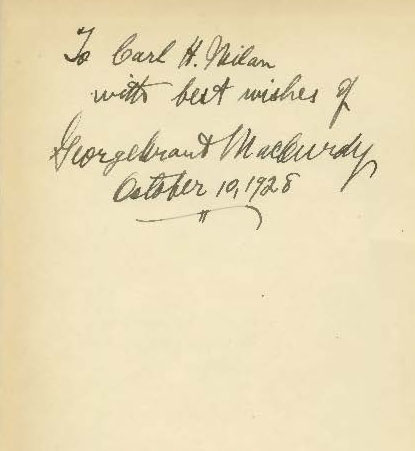 To Carl H. Milam
with best wishes of
George Grant MacCurdy
October 10, 1928